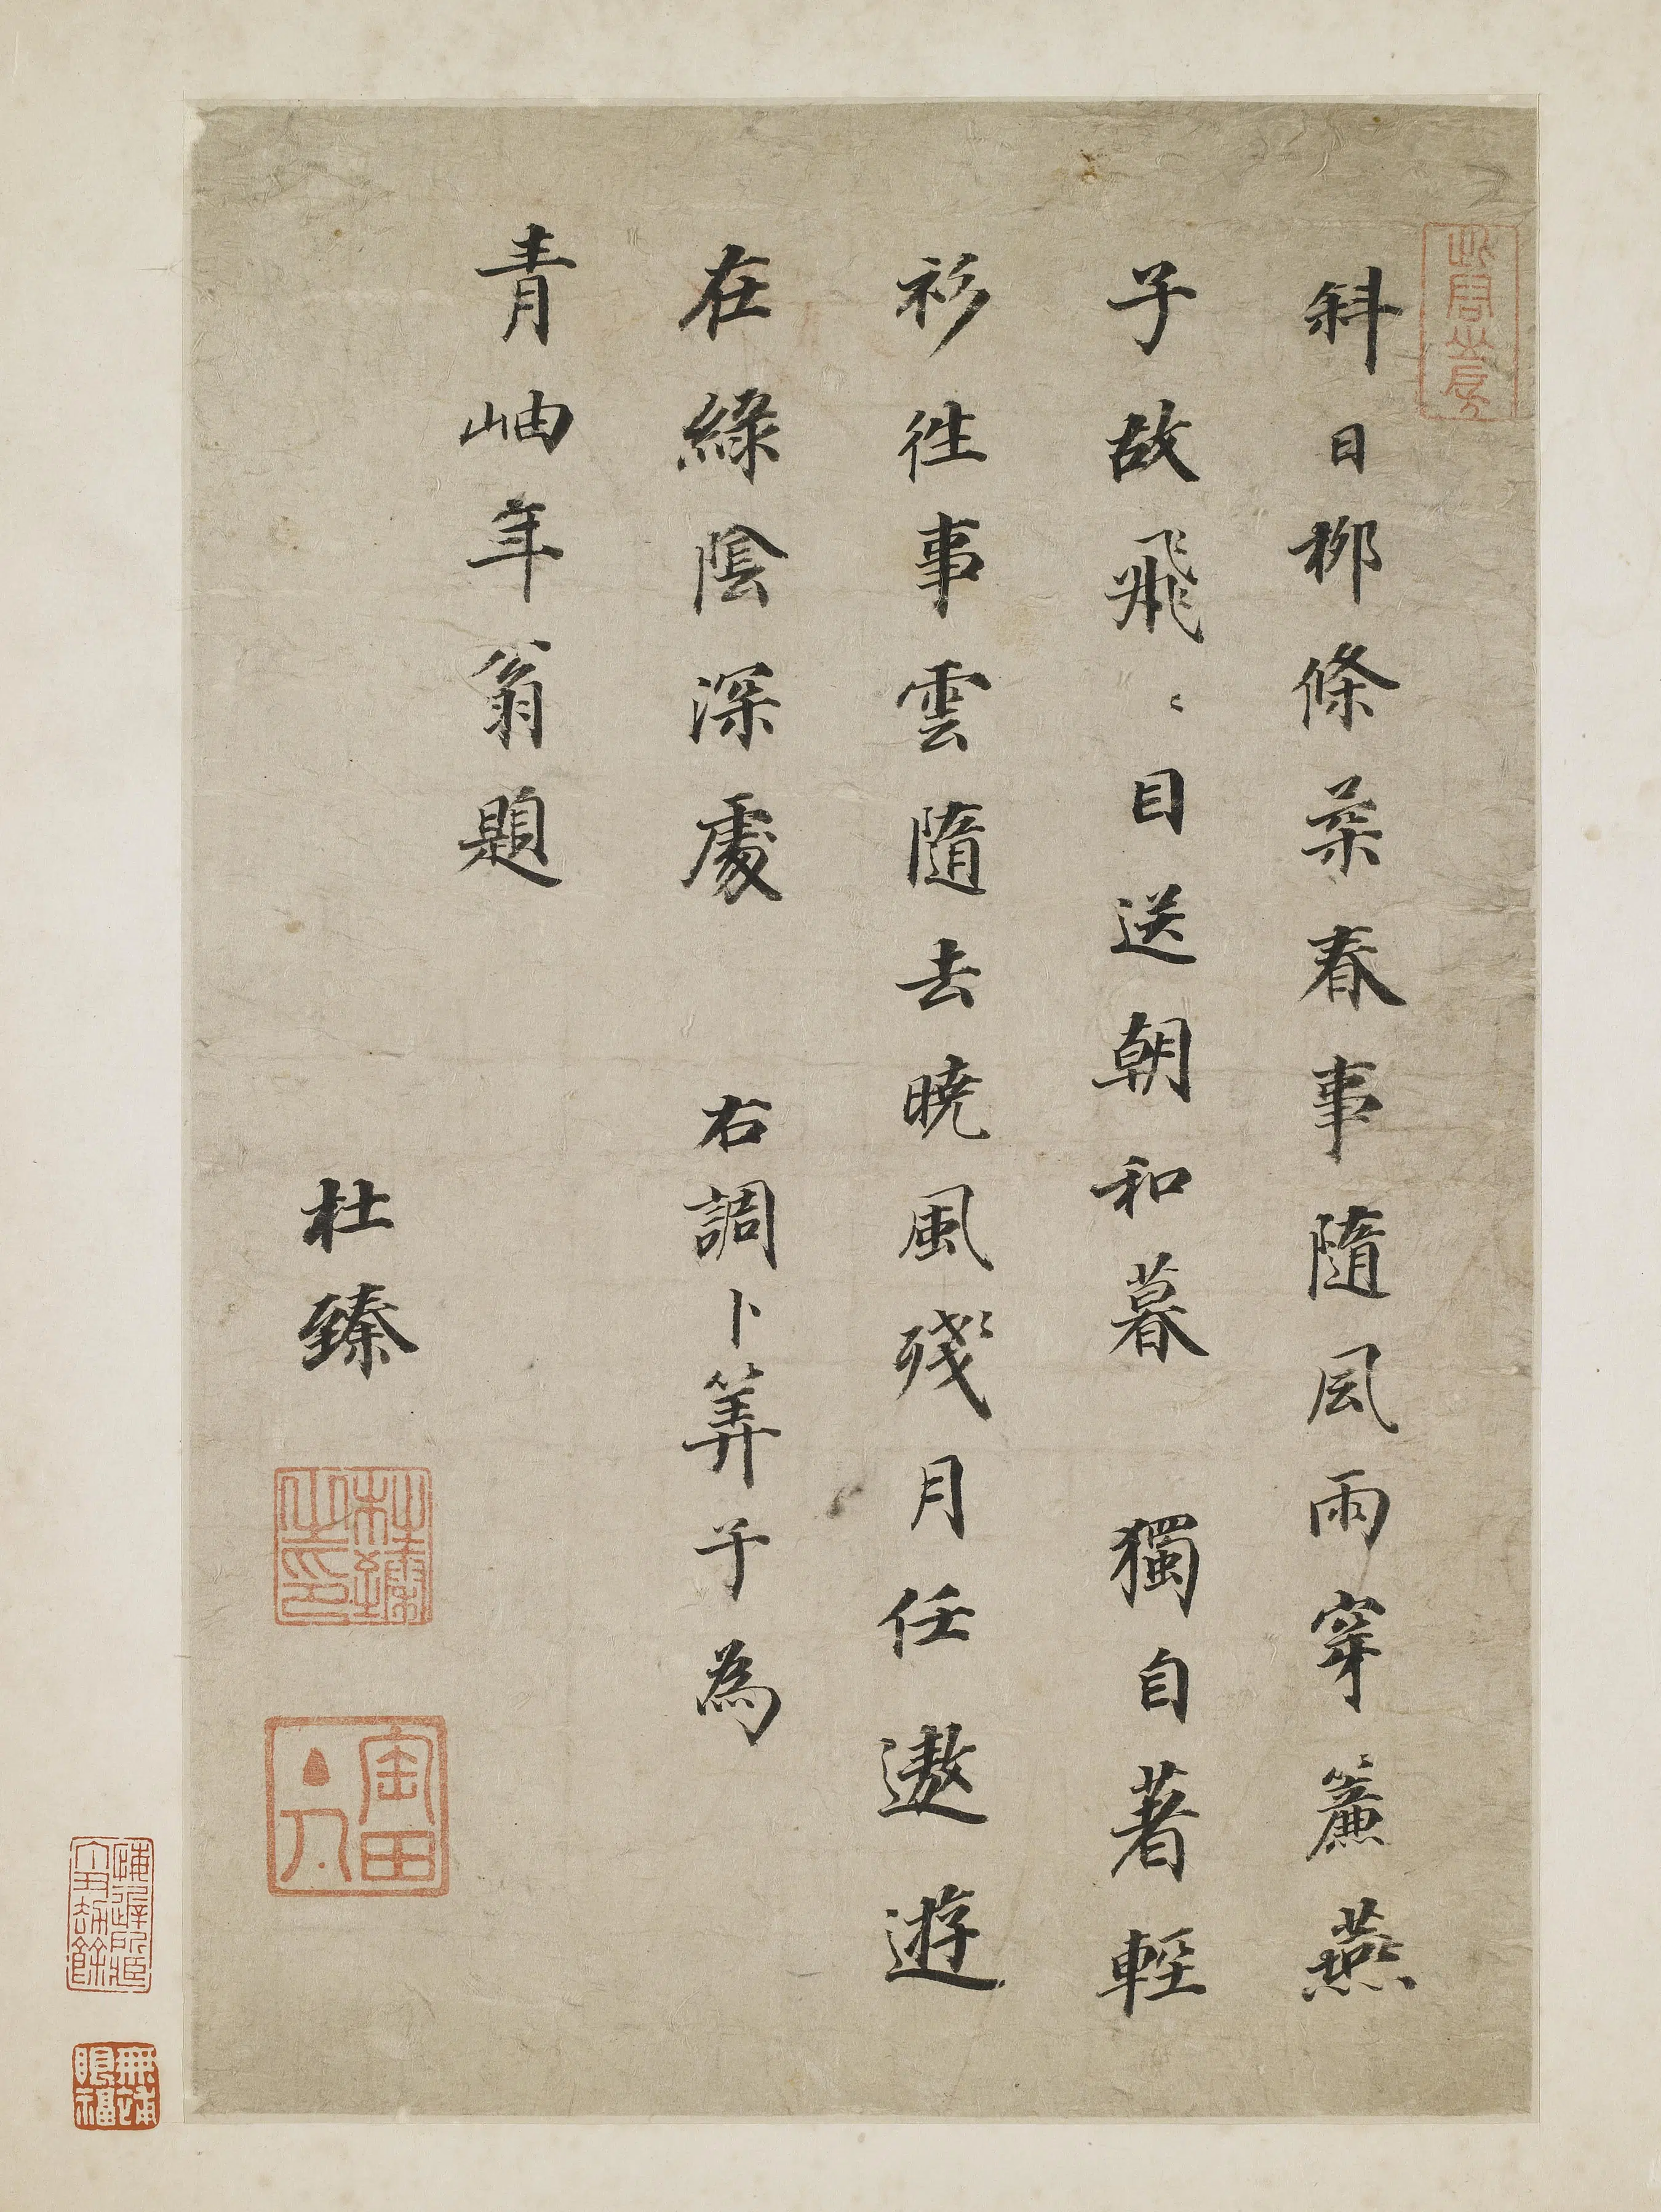 斜日柳條柔春事隨風雨穿簾燕
子故飛〻目送朝和暮　獨自著輕
衫徃事雲隨去曉風殘月任遨遊
在綠陰深處　右調卜筭子為
青岫年翁題
杜臻
杜臻之印
無逸眼福